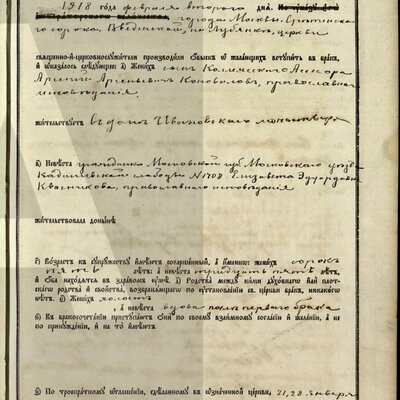 1918 года февраля второго дня. По указу его
Императорскаго величества города Москвы, Сретенскаго
сорока, Введенской, на Лубянке, церкви
священно-и-церковнослужители производили обыск о желающих вступить в брак,
и оказалось следующее: а) Жених сын Коллежскаго Асессора
Арсений Арсеньевич Коновалов, православнаго
исповедания,
жительствует в доме Ивановскаго монастыря
в) Невеста гражданка Московской губ Московскаго уезда
слободы № 1708 Елизавета Эдуардовна
Квасникова, православнаго исповедания
жительствовала доныне
г) Возраст к супружеству имеют совершенный, а именно: жених сорок
пять лет: а невеста тридцать пять лет,
и оба находятся в здравом уме. д) Родства между ними духовнаго или плот-
скаго родства и свойства, возбраняющаго по установлению св. церкви брак, никакого
нет. е) Жених холост
, а невеста вдова после перваго брака
ж) К бракосочетанию приступают они по своему взаимному согласию и желанию, а не
по принуждению, и на то имеют
з) По троекратному оглашению, сделанному в означенной церкви, 21, 28 января